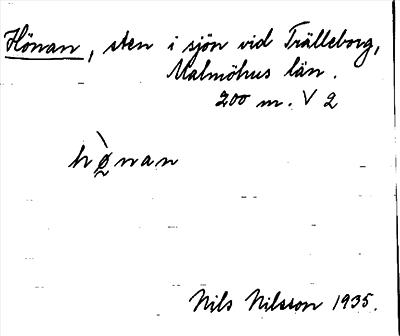 Hönan, sten i sjön vid Trälleborg,
Malmöhus län.
200 m. V 2
hø̰̀nan
Nils Nilsson 1935.